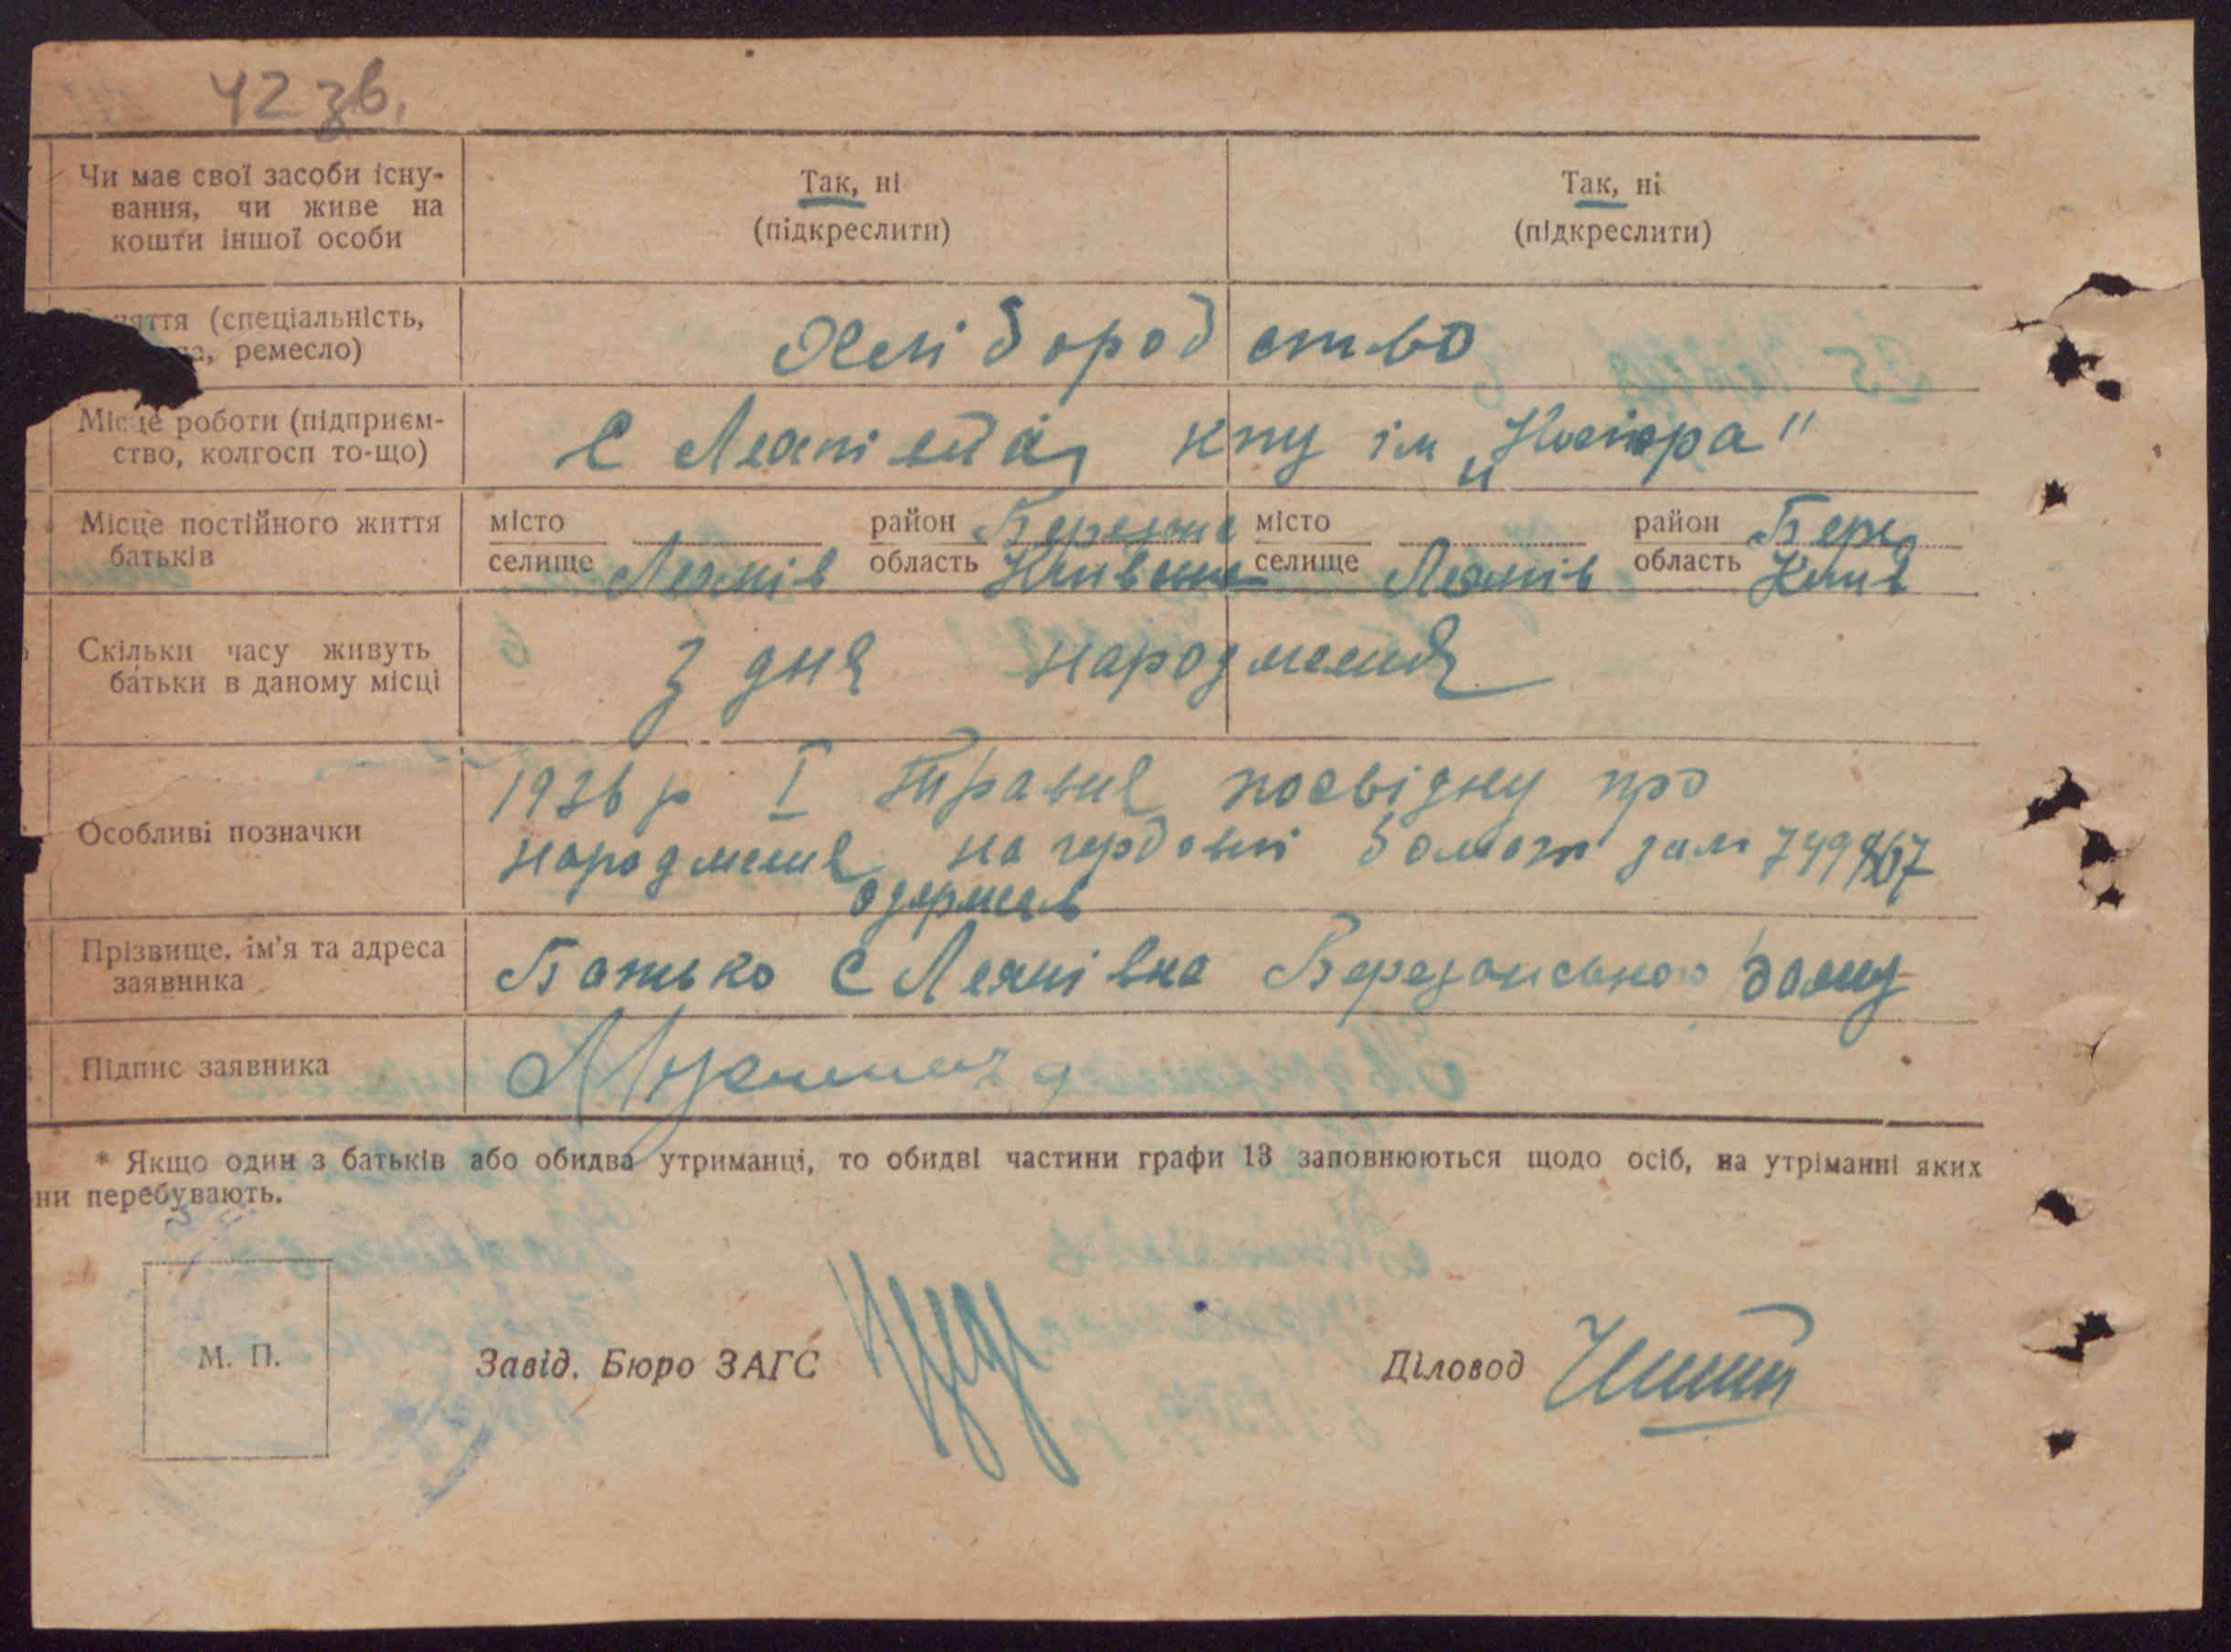 42 зв.
Чи має свої засоби існу-
вання, чи живе на
кошти іншої особи
Так, ні
(підкреслити)
Так, ні
(підкреслити)
няття (спеціальність,
да, ремесло)
Хлі бород ство
Місце роботи (підприєм-
ство, колгосп то-що)
С Леяпі кпу ім „Косіора"
Місце постійного життя
батьків
місто
район
місто
район Бере
селище Леяпів область Київська селище Леяпів область Київ
Скільки часу живуть
батьки в даному місці
З дня народження
Особливі позначки
1936 р I Травня посвідку про
народження на гербовій за № 749867
одержав
Прізвище, ім'я та адреса
заявника
Батько С Леяпівка Березанського
Підпис заявника
* Якщо один з батьків або обидва утриманці, то обидві частини графи 13 заповнюються щодо осіб, на утріманні яких
ни перебувають.
М. П.
Завід. Бюро ЗАГС
Діловод